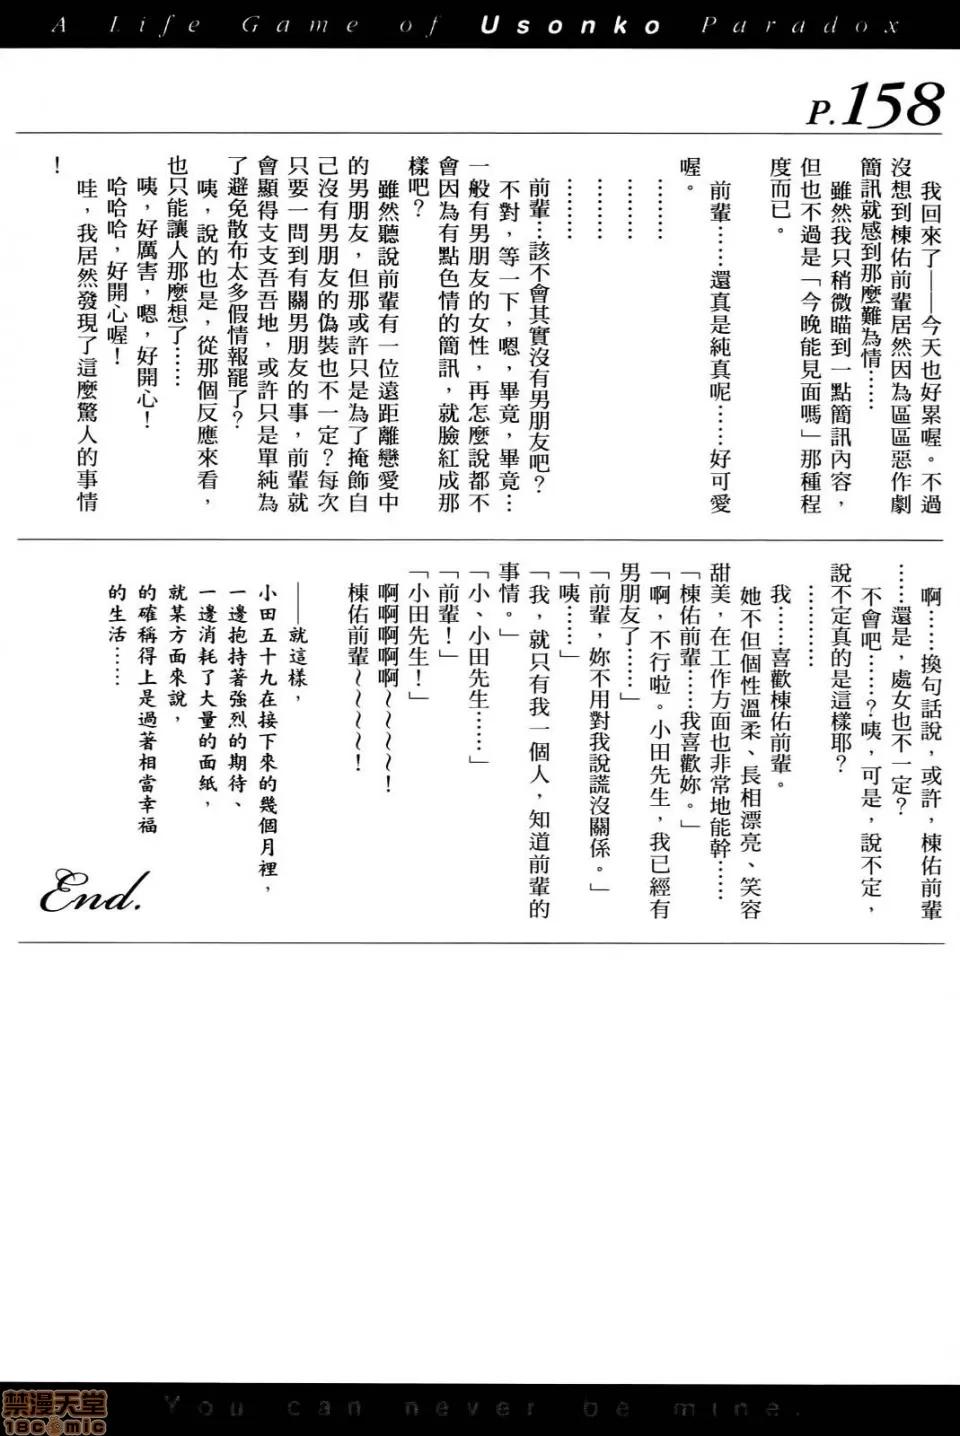 A Life Game of Usonko Paradox
P.158
我回來了——今天也好累喔。不過
沒想到棟佑前輩居然因為區區惡作劇
簡訊就感到那麼難為情……
雖然我只稍微瞄到一點簡訊內容，
但也不過是「今晚能見面嗎」那種程
度而已。
前輩……還真是純真呢……好可愛
喔。
…………
…………
…………
…………
前輩…該不會其實沒有男朋友吧？
不對，等一下，嗯，畢竟，畢竟…
一般有男朋友的女性，再怎麼說都不
會因為有點色情的簡訊，就臉紅成那
樣吧？
雖然聽說前輩有一位遠距離戀愛中
的男朋友，但那或許只是為了掩飾自
己沒有男朋友的偽裝也不一定？每次
只要一問到有關男朋友的事，前輩就
會顯得支支吾吾地，或許只是單純為
了避免散布太多假情報罷了？
咦，說的也是，從那個反應來看，
也只能讓人那麼想了……
咦，好厲害，嗯，好開心！
哈哈哈，好開心喔！
哇，我居然發現了這麼驚人的事情
！
啊……換句話說，或許，棟佑前輩
……還是，處女也不一定？
不會吧……？咦，可是，說不定，
說不定真的是這樣耶？
…………
我……喜歡棟佑前輩。
她不但個性溫柔、長相漂亮、笑容
甜美，在工作方面也非常地能幹……
「棟佑前輩……我喜歡妳。」
「啊，不行啦。小田先生，我已經有
男朋友了……」
「前輩，妳不用對我說謊沒關係。」
「咦……」
「我，就只有我一個人，知道前輩的
事情。」
「小、小田先生……」
「前輩！」
「小田先生！」
啊啊啊啊啊～～～～！
棟佑前輩～～～～！
——就這樣，
小田五十九在接下來的幾個月裡，
一邊抱持著強烈的期待、
一邊消耗了大量的面紙，
就某方面來說，
的確稱得上是過著相當幸福
的生活……
End.
You can never be mine
禁漫天堂
18comic